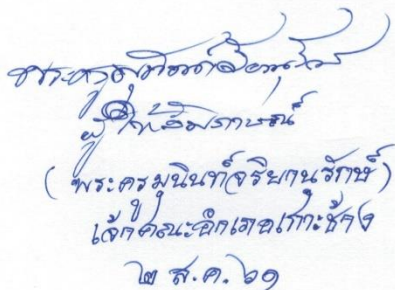 ผู้ให้สัมภาษณ์
(พระครูมุนินท์จริยานุรักษ์)
เจ้าคณะอำเภอเกาะช้าง
๒ ส.ค. ๖๑